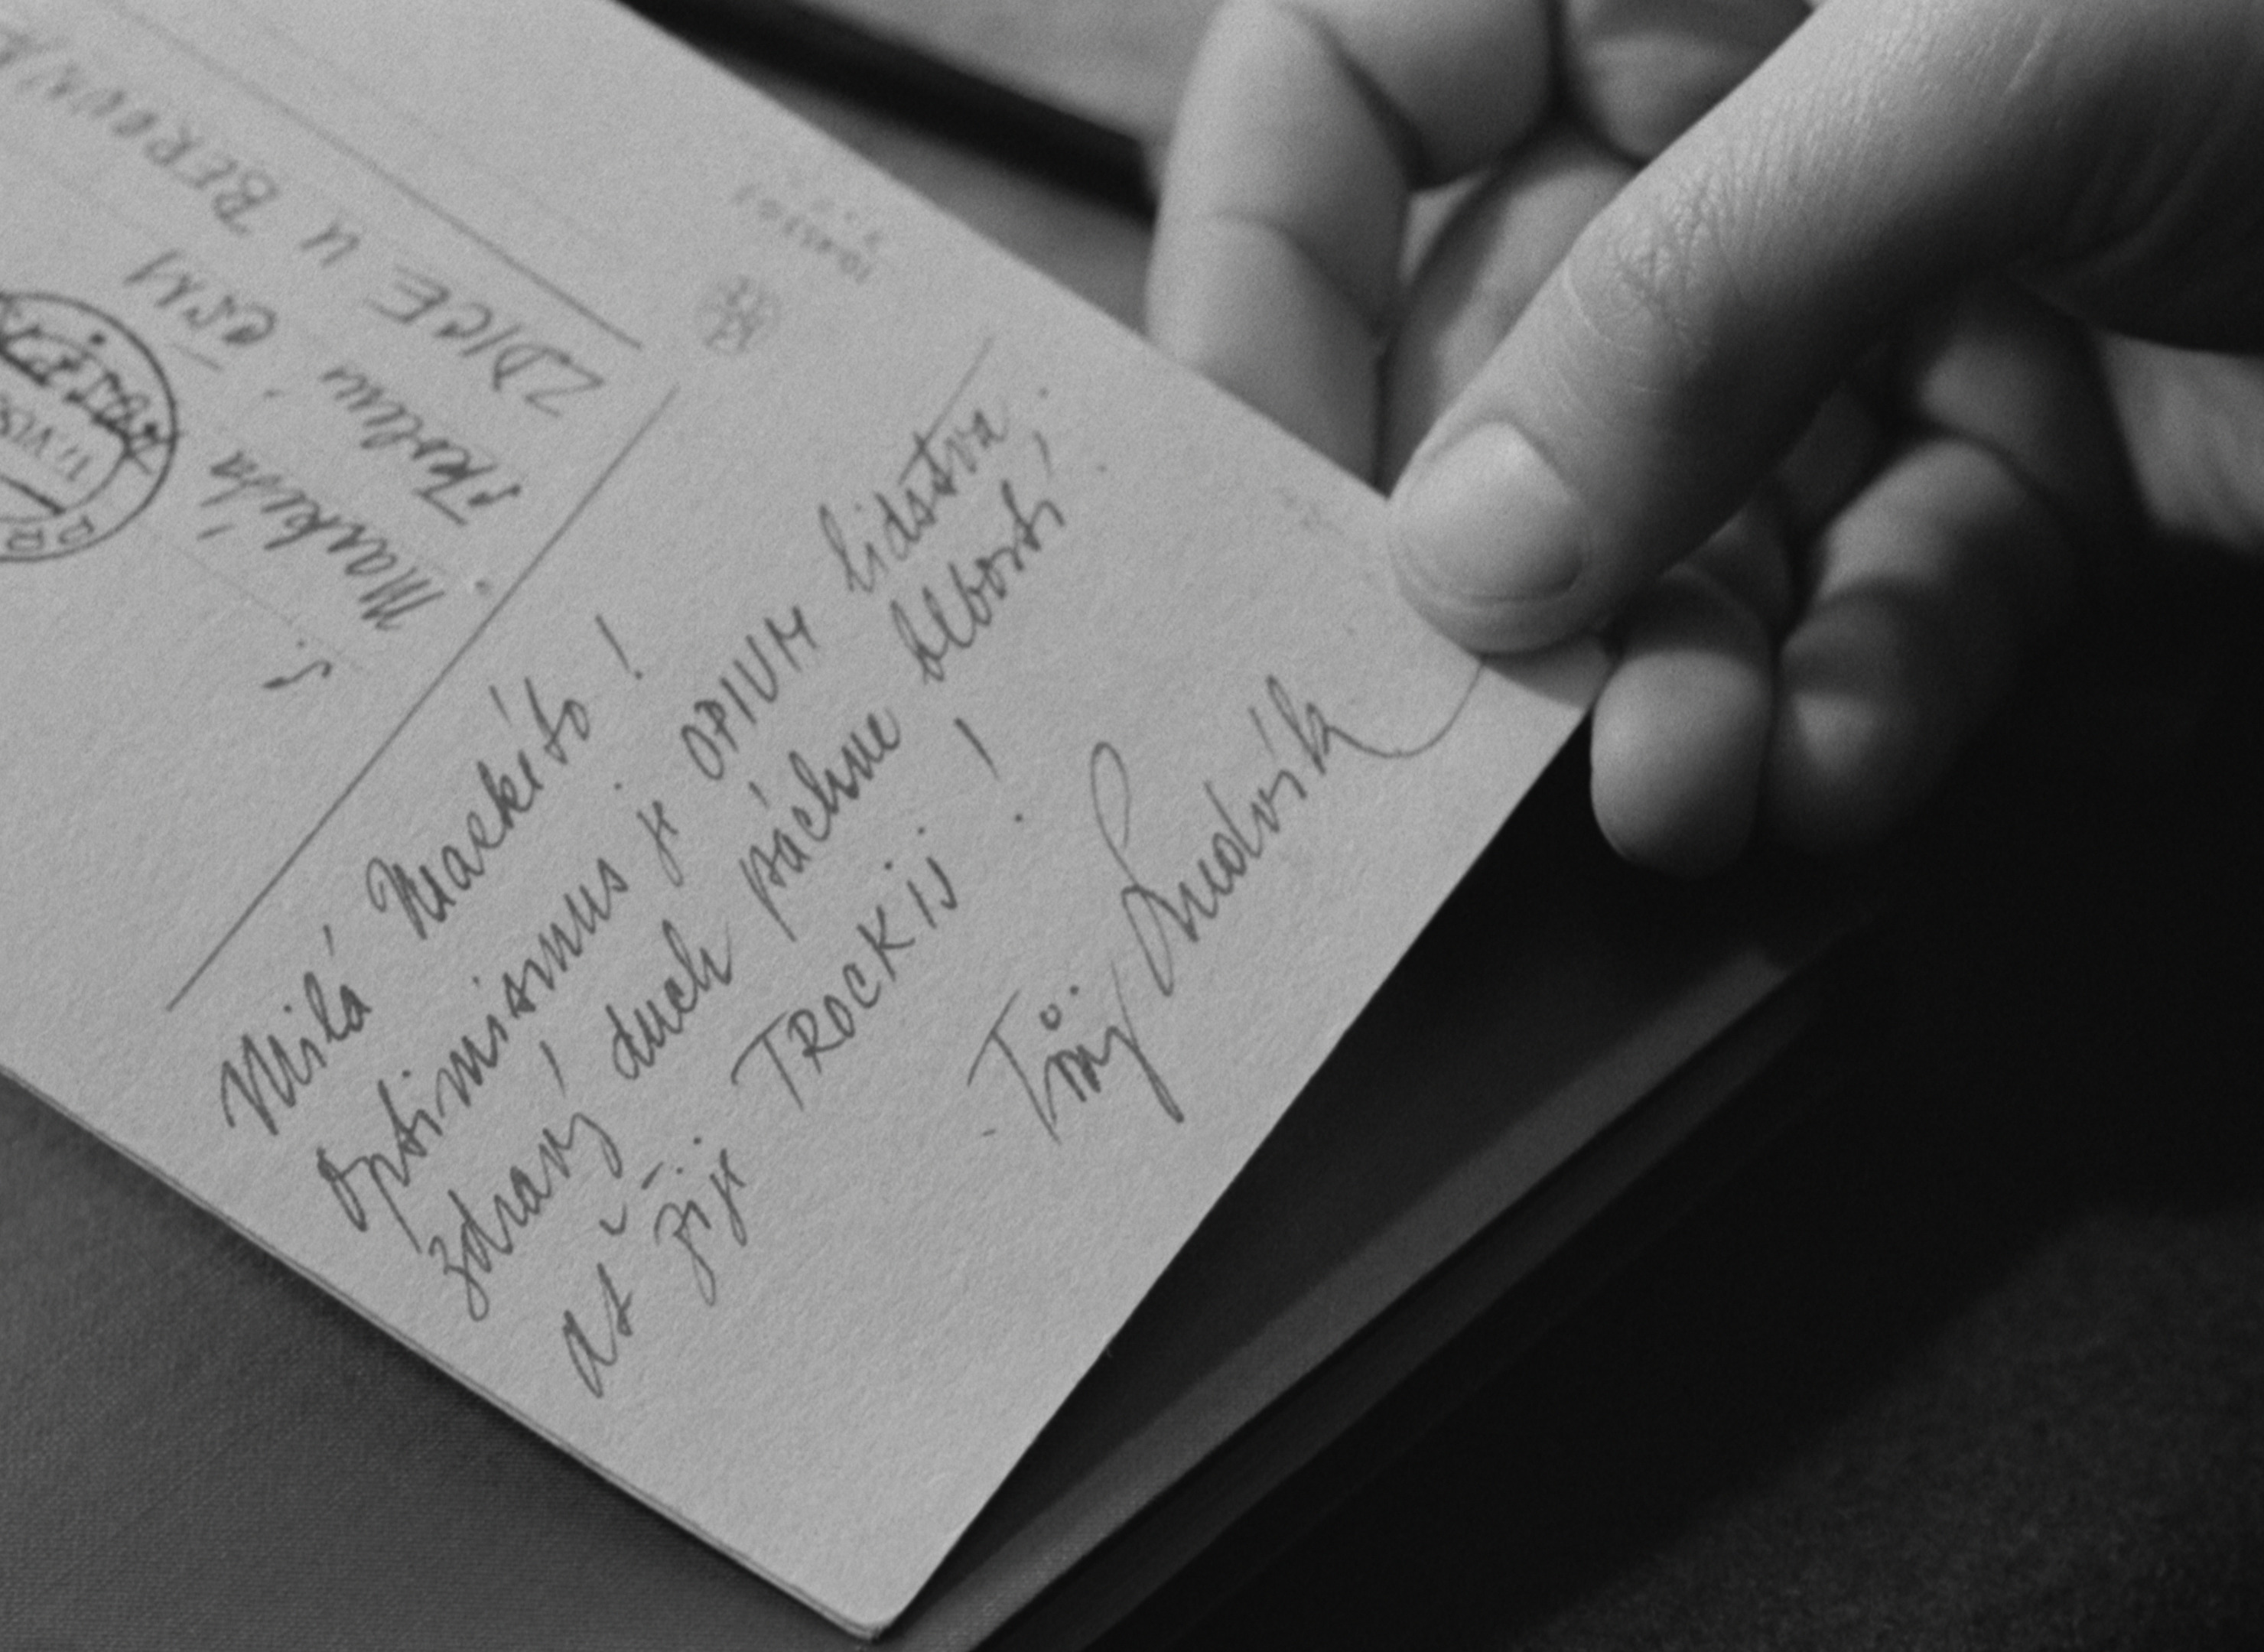 Milá Markéto!
Optimismus je OPIUM lidstva.
zdravý duch páchne blbostí,
ať žije TROCKIJ!
Tvůj Ludvík
S.
Markéta
ZDICE U BEROUNA